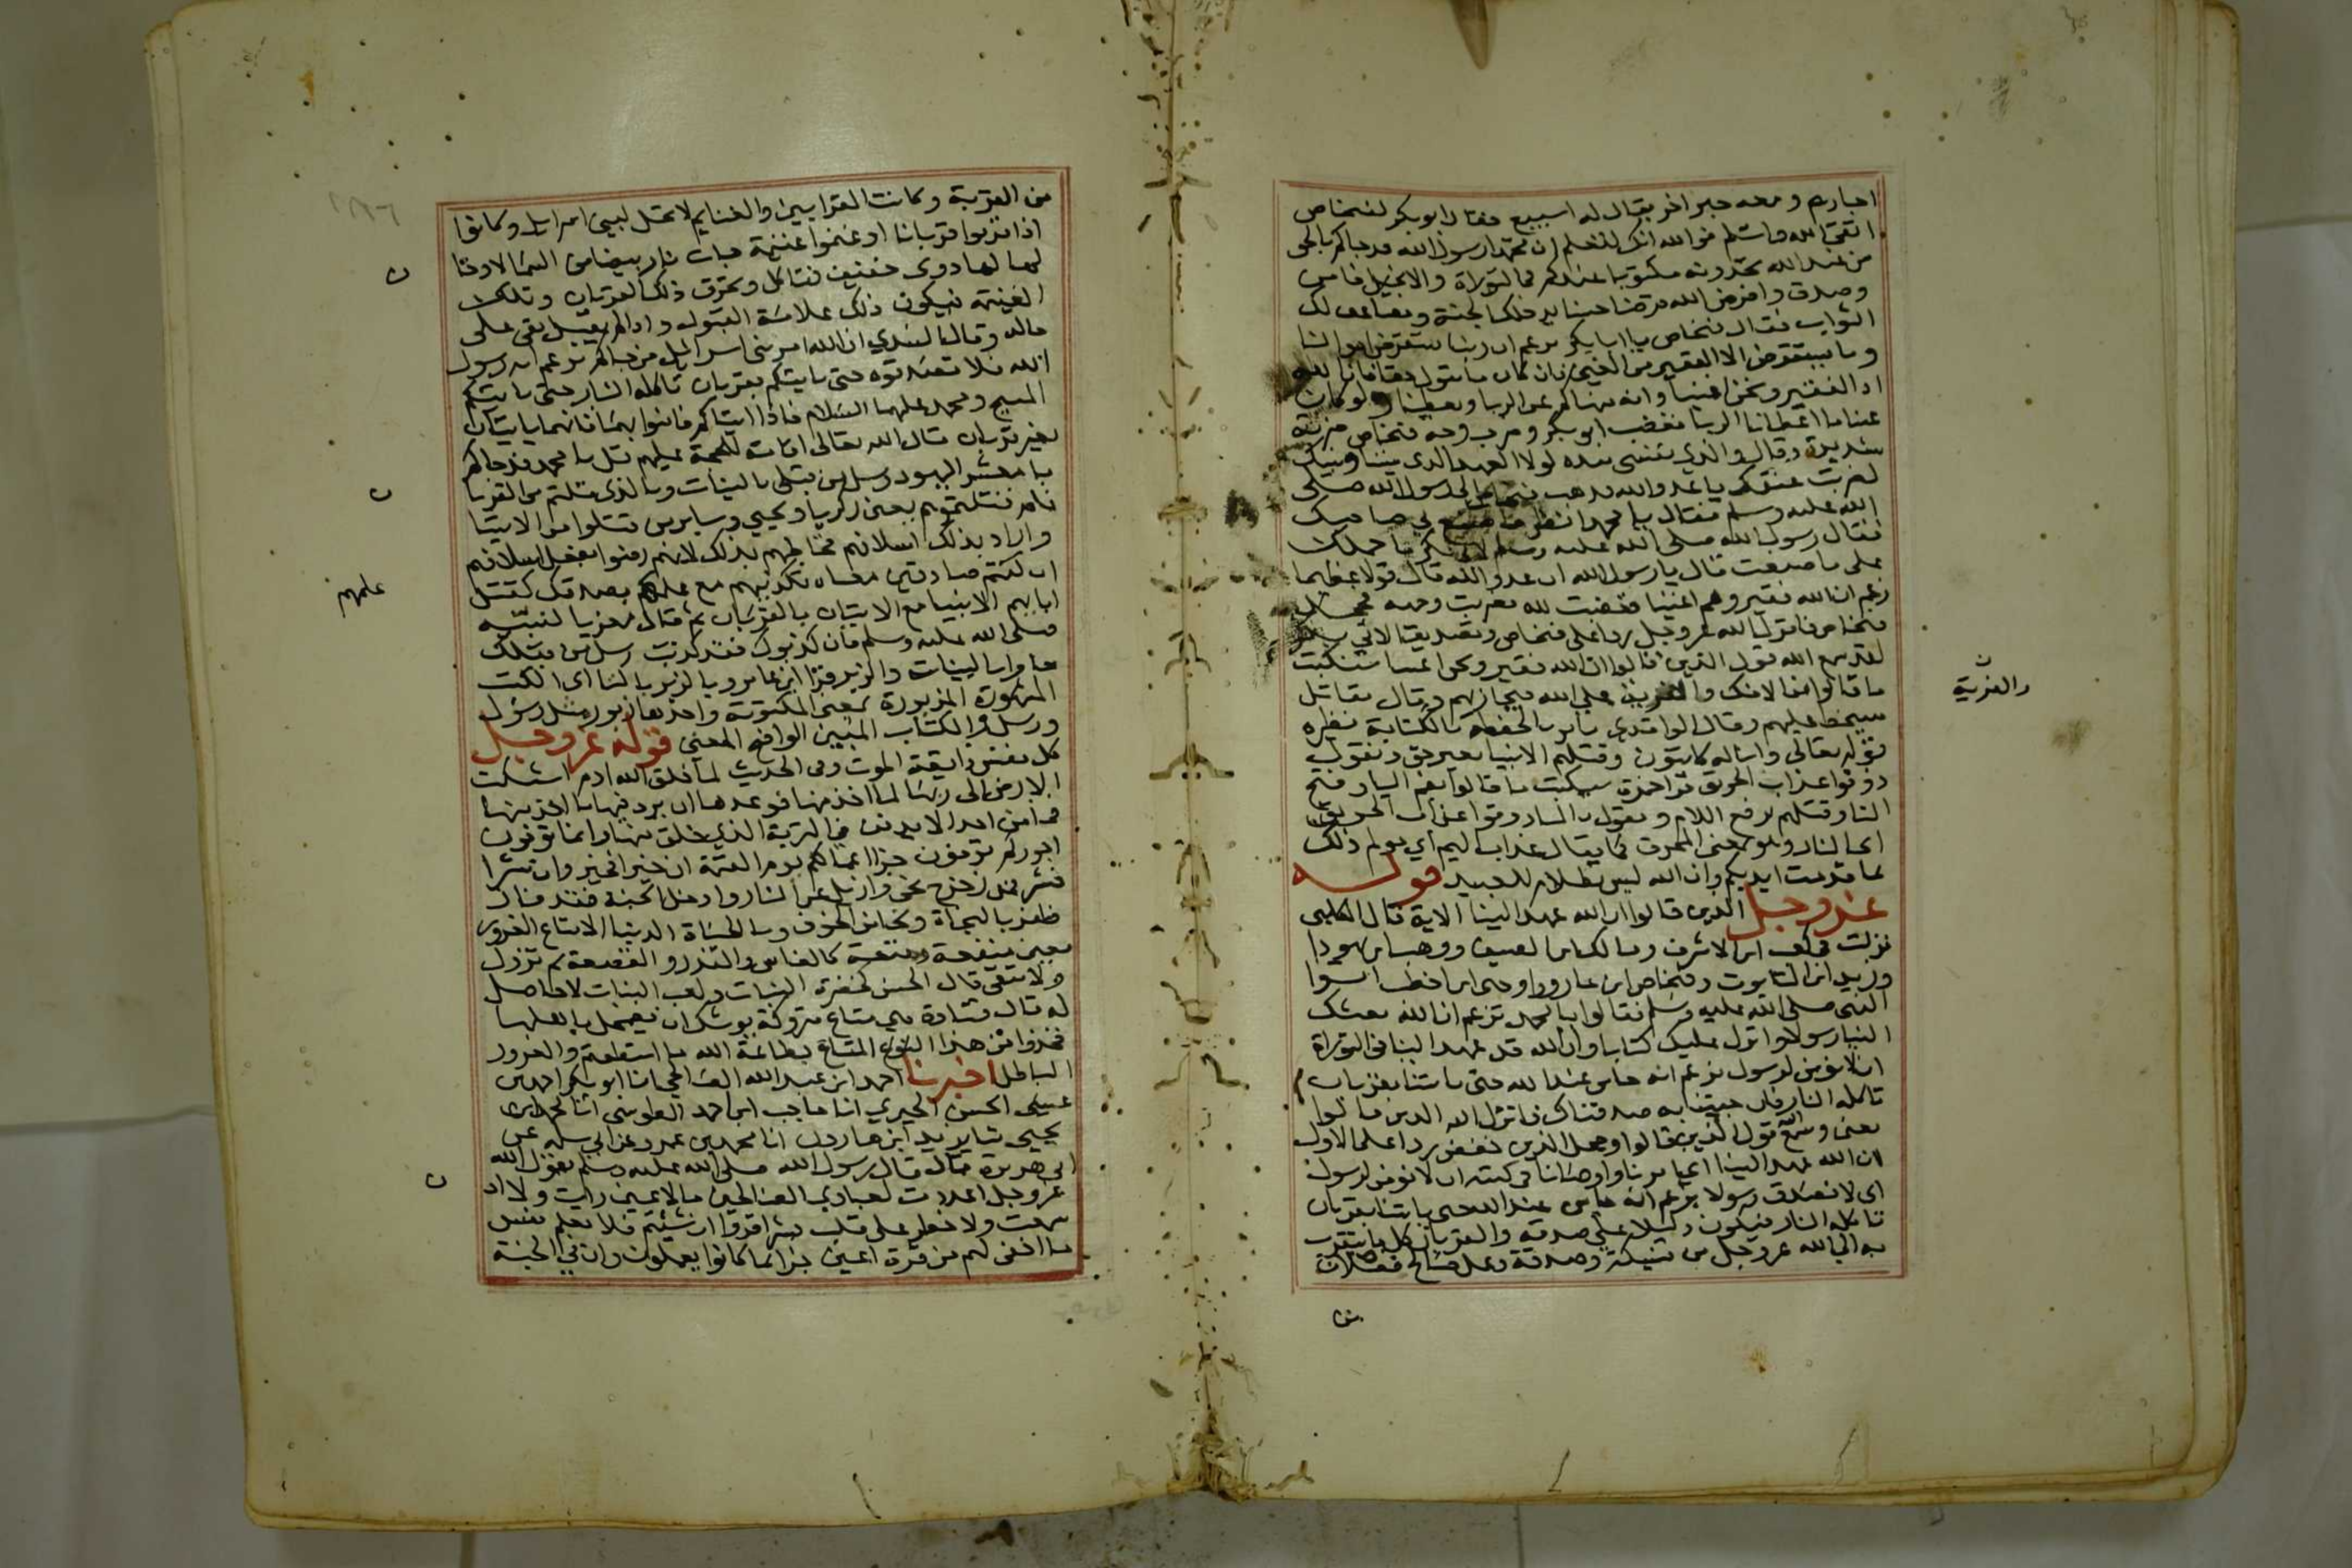 احبارهم ومعه حبر اخر يقال له اسبيع فقال ابو بكر لفنحاص
اتق الله واسلم فوالله انك لتعلم ان محمدا رسول الله قد جاكم بالحق
من عند الله تجدونه مكتوبا عندكم في التوراة والانجيل فامن
وصدق واقرض الله قرضا حسنا يدخلك الجنة ويضاعف لك
الثواب فقال فنحاص يا ابا بكر تزعم ان ربنا يستقرض اموالنا
وما يستقرض الا الفقير من الغني فان كان ما تقول حقا فان الله
اذا لفقير ونحن اغنيا وانه ينهاكم عن الربا ويعطينا ولو كان
غنيا ما اعطانا الربا فغضب ابو بكر وضرب وجه فنحاص ضربة
شديدة وقال والذي نفسي بيده لولا العهد الذي بيننا وبينك
لضربت عنقك يا عدو الله فذهب فنحاص الى رسول الله صلى
الله عليه وسلم فقال يا محمد انظر ما صنع بي صاحبك
فقال رسول الله صلى الله عليه وسلم لابي بكر ما حملك
على ما صنعت قال يا رسول الله ان عدو الله قال قولا عظيما
زعم ان الله فقير وهم اغنيا فغضبت لله فضربت وجهه فجحد
فنحاص فانزل الله عز وجل ردا على فنحاص وتصديقا لابي بكر
لقد سمع الله قول الذين قالوا ان الله فقير ونحن اغنيا سنكتب
ما قالوا من الافك والفرية على الله فيجازيهم وقال مقاتل
سيحفظ عليهم وقال الواقدي نامر الحفظة بالكتابة نظيره
قوله تعالى وانا له كاتبون وقتلهم الانبيا بغير حق ونقول
ذوقوا عذاب الحريق قرا حمزة سيكتب ما قالوا بضم اليا وفتح
التا وقتلهم برفع اللام ويقول باليا ذوقوا عذاب الحريق
اي النار وهو بمعنى المحرق كما يقال عذاب اليم اي مولم ذلك
بما قدمت ايديكم وان الله ليس بظلام للعبيد قوله
عز وجل الذين قالوا ان الله عهد الينا الاية قال الكلبي
نزلت في كعب ابن الاشرف ومالك ابن الصيف ووهب ابن يهودا
وزيد ابن التابوت وفنحاص ابن عازورا وحي ابن اخطب اتوا
النبي صلى الله عليه وسلم فقالوا يا محمد تزعم ان الله بعثك
الينا رسولا وانزل عليك كتابا وان الله قد عهد الينا في التوراة
ان لا نومن لرسول يزعم انه جا من عند الله حتى ياتينا بقربان
تاكله النار فان جيتنا به صدقناك فانزل الله الذين قالوا
يعنى وسمع قول الذين قالوا ومحل الذين خفض ردا على الاول
ان الله عهد الينا اي امرنا واوصانا في كتبه ان لا نومن لرسول
اي لا نصدق رسولا يزعم انه جا من عند الله حتى ياتينا بقربان
تاكله النار فيكون دليلا على صدقه والقربان كل ما يتقرب
به الى الله عز وجل من نسيكة وصدقة وعمل صالح فعلان
والفرية
من
من القربة وكانت القرابين والغنايم لا تحل لبني اسرايل وكانوا
اذا قربوا قربانا او غنموا غنيمة جات نار بيضا من السما لا دخان
لها لها دوي حفيف فتاكل وتحرق ذلك القربان وتلك
الغنيمة فيكون ذلك علامة القبول واذا لم يقبل بقي على
حاله وقال السدي ان الله امر بني اسرايل من جاكم يزعم انه رسول
الله فلا تصدقوه حتى ياتيكم بقربان تاكله النار حتى ياتيكم
المسيح ومحمد عليهما السلام فاذا اتياكم فامنوا بهما فانهما ياتيان
بغير قربان قال الله تعالى اقامة للحجة عليهم قل يا محمد قد جاكم
يا معشر اليهود رسل من قبلي بالبينات وبالذي قلتم من القربان
فلم قتلتموهم يعني زكريا ويحيى وساير من قتلوا من الانبيا
واراد بذلك اسلافهم فخاطبهم بذلك لانهم رضوا بفعل اسلافهم
ان كنتم صادقين معناه تكذيبهم مع علمهم بصدقك كقتل
ابايهم الانبيا مع الاتيان بالقربان ثم قال معزيا لنبيه
صلى الله عليه وسلم فان كذبوك فقد كذب رسل من قبلك
جاوا بالبينات والزبر قرا ابن عامر وبالزبر بالبا اي الكتب
المزبورة يعني المكتوبة واحدها زبور مثل رسول
ورسل والكتاب المبين الواضح المعنى قوله عز وجل
كل نفس ذايقة الموت وفي الحديث لما خلق الله ادم اشتكت
الارض الى ربها لما اخذ منها فوعدها ان يرد فيها ما اخذ منها
فما من احد الا يدفن في التربة التي خلق منها وانما توفون
اجوركم توفون جزا اعمالكم يوم القيمة ان خيرا فخير وان شرا
فشر فمن زحزح نحي وازيل عن النار وادخل الجنة فقد فاز
ظفر بالنجاة ونجا من الخوف وما الحياة الدنيا الا متاع الغرور
يعني منفعة ومتعة كالفاس والقدر والقصعة ثم تزول
ولا تبقى قال الحسن كخضرة النبات ولعب البنات لا حاصل
له قال قتادة هي متاع متروكة يوشك ان تضمحل باهلها
فخذوا من هذا المتاع بطاعة الله ما استطعتم والغرور
الباطل اخبرنا احمد ابن عبد الله الصالحي انا ابو بكر احمد بن
الحسن الحيري انا حاجب ابن احمد الطوسي انا محمد ابن
يحيى نا يزيد ابن هارون انا محمد بن عمرو عن ابي سلمه عن
ابي هريرة قال قال رسول الله صلى الله عليه وسلم يقول الله
عز وجل اعددت لعبادي الصالحين ما لا عين رات ولا اذن
سمعت ولا خطر على قلب بشر اقروا ان شئتم فلا تعلم نفس
ما اخفي لهم من قرة اعين جزا بما كانوا يعملون وان في الجنة
علمهم